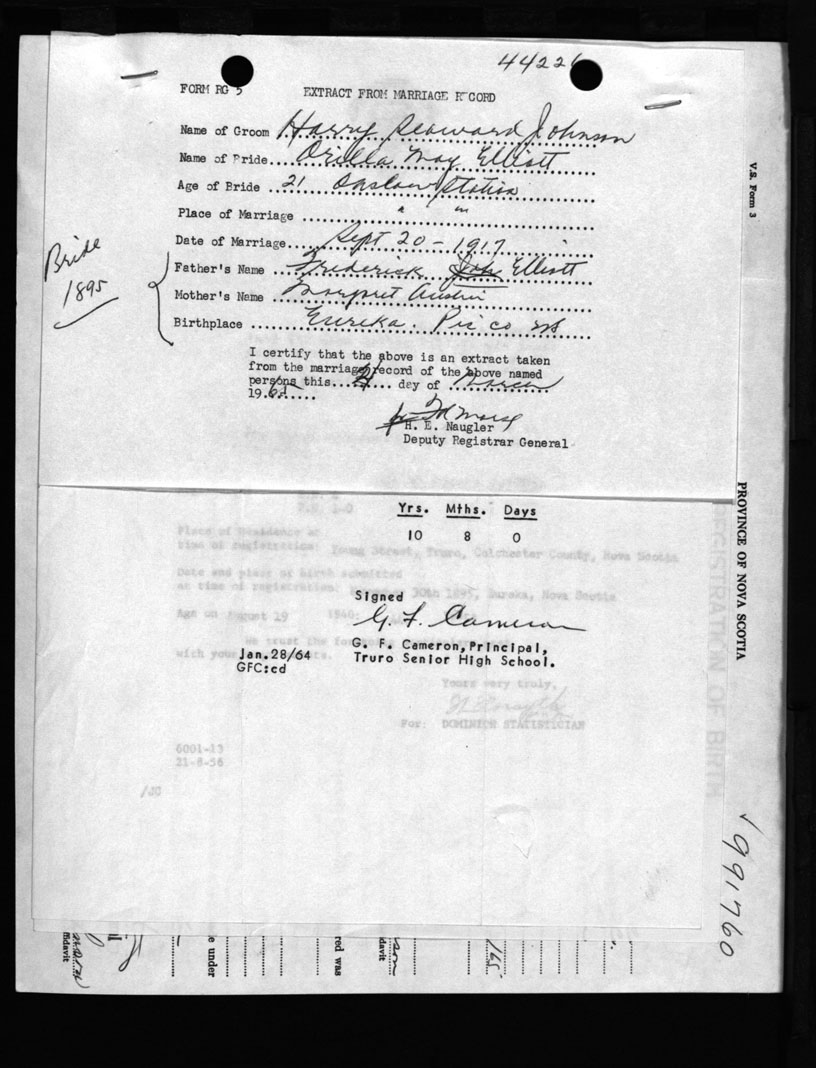 44226
FORM RG 5 EXTRACT FROM MARRIAGE RECORD
Name of Groom Harry Seaward Johnson
Name of Bride.... Orilla May Elliott
Age of Bride .. 21 Onslow Station
Place of Marriage .... " "
Date of Marriage.... Sept 20 - 1917
Father's Name .. Frederick Elliott
Mother's Name .. Margret Austin
Birthplace .... Eureka. Pic co NS
Bride
1895
I certify that the above is an extract taken
from the marriage record of the above named
persons this.... day of ..
19.65....
H. E. Naugler
Deputy Registrar General
Yrs. Mths. Days
10 8 0
Place of Residence at
time of registration: Young Street, Truro, Colchester County, Nova Scotia
Date and place of birth submitted
at time of registration: 30th 1895, Eureka, Nova Scotia
Age on August 19 1940:
Signed
G. F. Cameron
G. F. Cameron, Principal,
Truro Senior High School.
Jan.28/64
GFC:cd
We trust the
with your
Yours very truly,
For: DOMINION STATISTICIAN
6001-13
21-8-56
/JC
V.S. Form 3
PROVINCE OF NOVA SCOTIA
REGISTRATION OF BIRTH
991760
e under
red was
davit
165